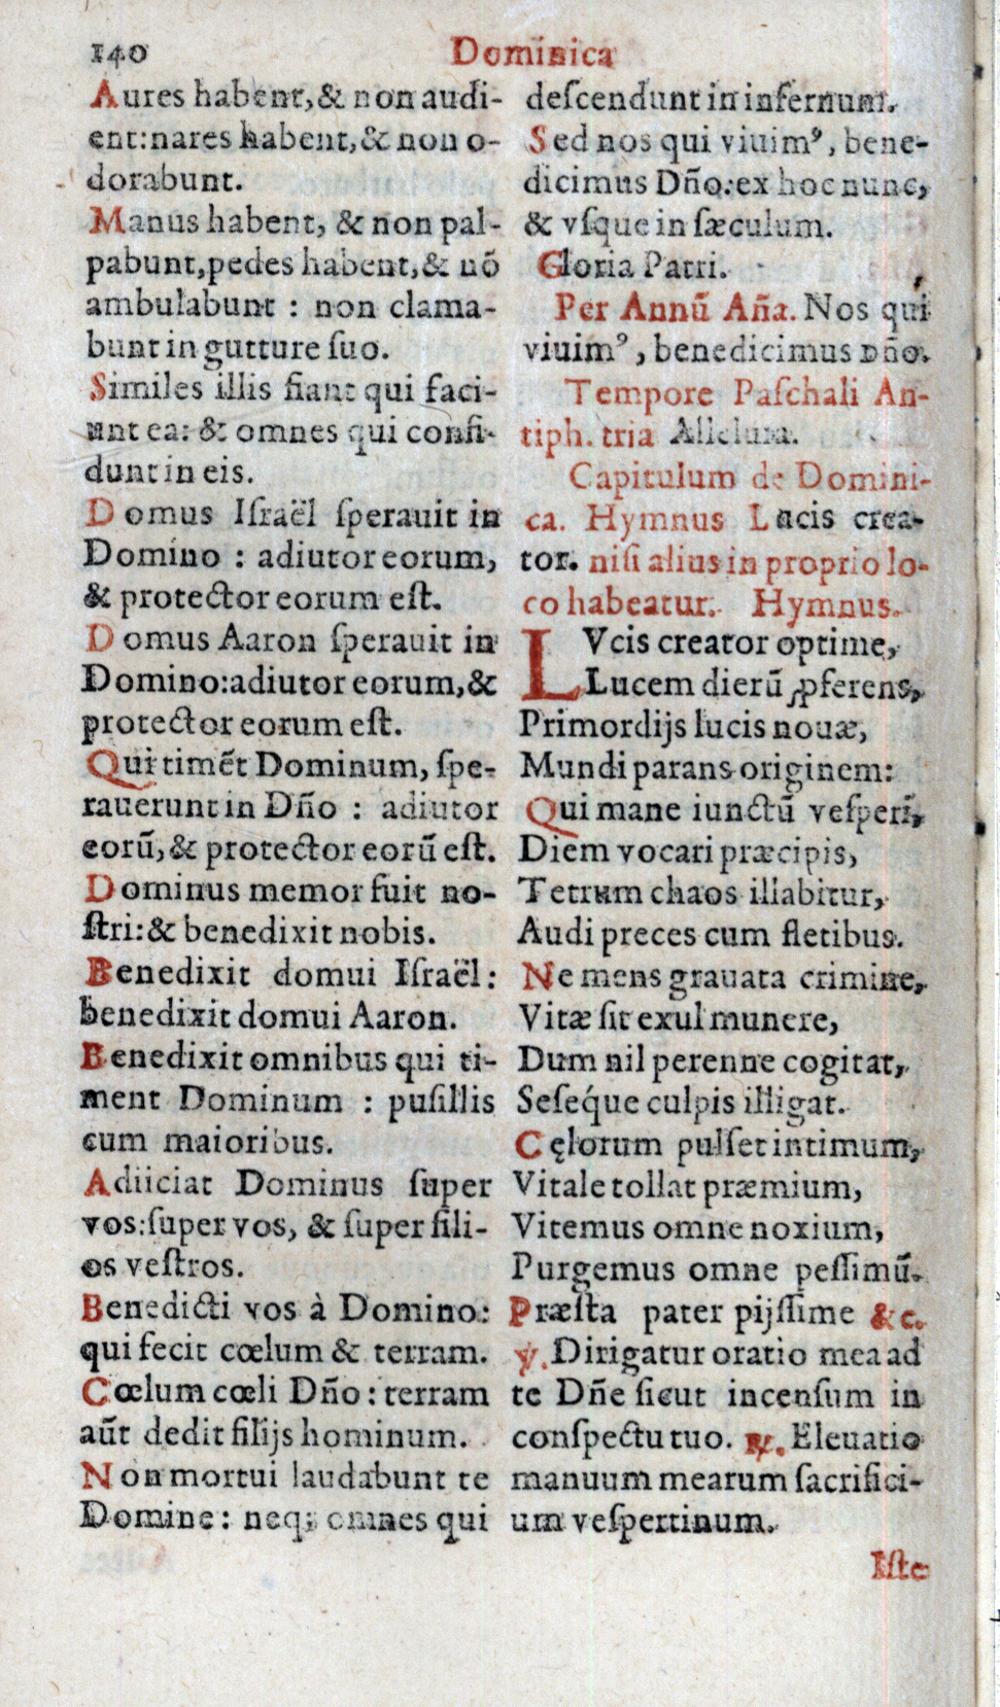 140
Dominica
Aures habent, & non audi-
ent: nares habent, & non o-
dorabunt.
Manus habent, & non pal-
pabunt, pedes habent, & nõ
ambulabunt : non clama-
bunt in gutture ſuo.
Similes illis fiant qui faci-
unt ea: & omnes qui confi-
dunt in eis.
Domus Iſraël ſperauit in
Domino : adiutor eorum,
& protector eorum eſt.
Domus Aaron ſperauit in
Domino: adiutor eorum, &
protector eorum eſt.
Qui timẽt Dominum, ſpe-
rauerunt in Dño : adiutor
eorũ, & protector eorũ eſt.
Dominus memor fuit no-
ſtri: & benedixit nobis.
Benedixit domui Iſraël:
benedixit domui Aaron.
Benedixit omnibus qui ti-
ment Dominum : puſillis
cum maioribus.
Adiiciat Dominus ſuper
vos: ſuper vos, & ſuper fili-
os veſtros.
Benedicti vos à Domino:
qui fecit cœlum & terram.
Cœlum cœli Dño: terram
aũt dedit filijs hominum.
Non mortui laudabunt te
Domine: neq; omnes qui
deſcendunt in infernum.
Sed nos qui viuimꝰ, bene-
dicimus Dño: ex hoc nunc,
& vſque in ſæculum.
Gloria Patri.
Per Annũ Aña. Nos qui
viuimꝰ, benedicimus Dño.
Tempore Paſchali An-
tiph. tria Alleluia.
Capitulum de Domini-
ca. Hymnus Lucis crea-
tor. niſi alius in proprio lo-
co habeatur. Hymnus.
LVcis creator optime,
Lucem dierũ ꝓferens,
Primordijs lucis nouæ,
Mundi parans originem:
Qui mane iunctũ veſperĩ,
Diem vocari præcipis,
Tetrum chaos illabitur,
Audi preces cum fletibus.
Ne mens grauata crimine,
Vitæ ſit exul munere,
Dum nil perenne cogitat,
Seſéque culpis illigat.
Cęlorum pulſet intimum,
Vitale tollat præmium,
Vitemus omne noxium,
Purgemus omne peſſimũ.
Præſta pater pijſſime &c.
℣. Dirigatur oratio mea ad
te Dñe ſicut incenſum in
conſpectu tuo. ℟. Eleuatio
manuum mearum ſacrifici-
um veſpertinum.
Iſte